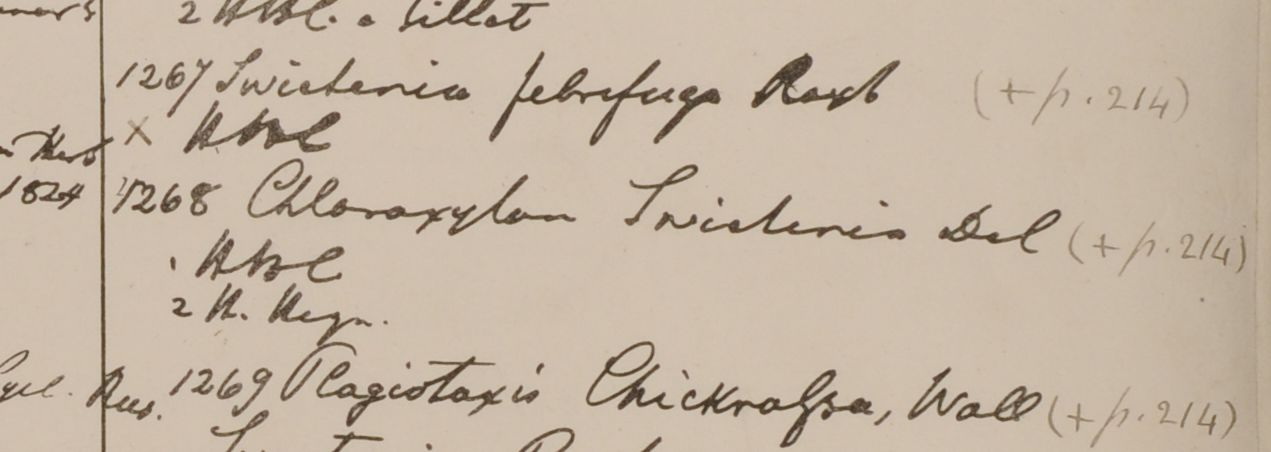 2 HBC. a
1267 Swietenia febrifuga Roxb (+ p. 214)
x HBC
1824 1268 Chloroxylon Swietenia Del (+ p. 214)
. HBC
2 H. Heyn.
1269 Plagiotaxis Chickrassa, Wall (+ p. 214)